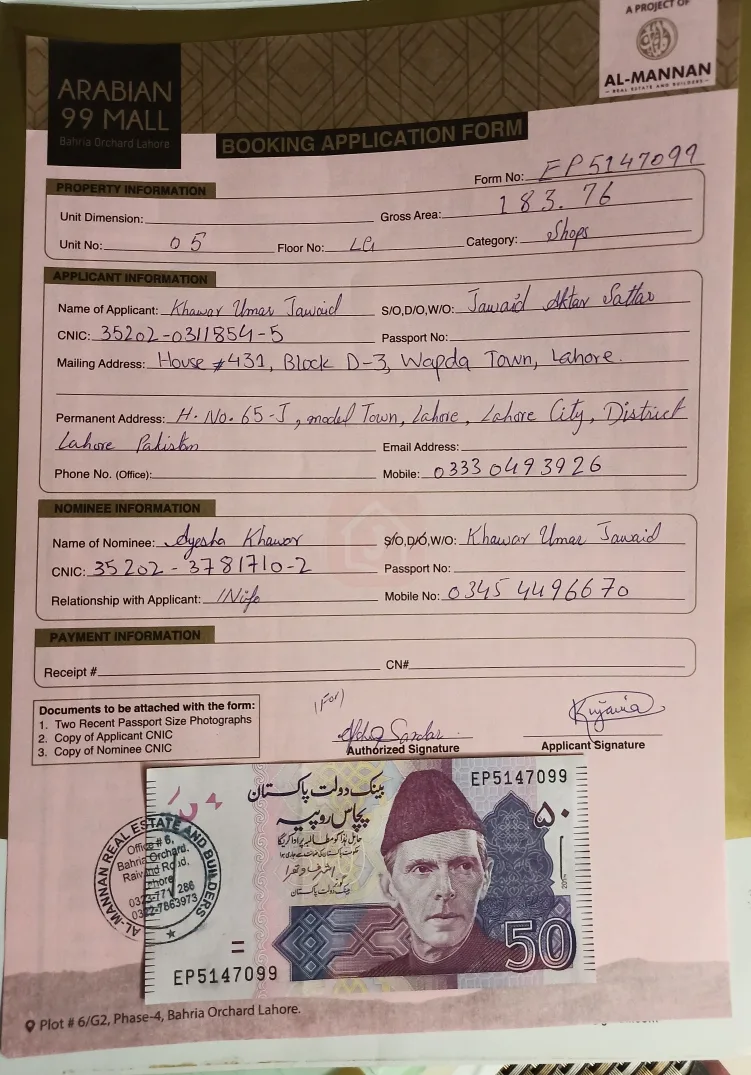 A PROJECT OF
AL-MANNAN
REAL ESTATE AND BUILDERS
ARABIAN
99 MALL
Bahria Orchard Lahore
BOOKING APPLICATION FORM
Form No: EP5147099
PROPERTY INFORMATION
Unit Dimension: Gross Area: 183.76
Unit No: 05 Floor No: LG Category: Shops
APPLICANT INFORMATION
Name of Applicant: Khawar Umar Jawaid S/O,D/O,W/O: Jawaid Aktar Sattar
CNIC: 35202-0311854-5 Passport No:
Mailing Address: House #431, Block D-3, Wapda Town, Lahore.
Permanent Address: H. No. 65-J, model Town, Lahore, Lahore City, District
Lahore Pakistan Email Address:
Phone No. (Office): Mobile: 0333 0493926
NOMINEE INFORMATION
Name of Nominee: Ayesha Khawar S/O,D/O,W/O: Khawar Umar Jawaid
CNIC: 35202-3781710-2 Passport No:
Relationship with Applicant: Wife Mobile No: 0345 4496670
PAYMENT INFORMATION
Receipt # CN#
Documents to be attached with the form:
1. Two Recent Passport Size Photographs
2. Copy of Applicant CNIC
3. Copy of Nominee CNIC
(For)
Authorized Signature
Applicant Signature
بینک دولت پاکستان
EP5147099
پچاس روپیہ
۵۰
حامل ہذا کو مطالبہ پر ادا کریگا
بینک دولت پاکستان
50
EP5147099
AL-MANNAN REAL ESTATE AND BUILDERS
Office # 6,
Bahria Orchard,
Raiwind Road,
Lahore
Plot # 6/G2, Phase-4, Bahria Orchard Lahore.